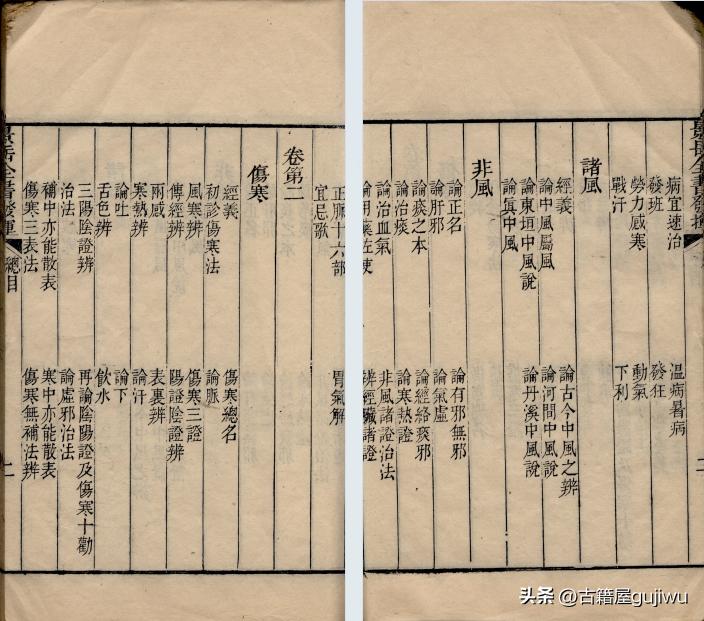 正脈十六部 胃氣解
宜忌歌
卷第二
傷寒
經義 傷寒總名
初診傷寒法 論脈
風寒辨 傷寒三證
傳經辨 陽證陰證辨
兩感 表裏辨
寒熱辨 論汗
論吐 論下
舌色辨 飲水
三陽陰證辨 再論陰陽證及傷寒十勸
治法 論虛邪治法
補中亦能散表 寒中亦能散表
傷寒三表法 傷寒無補法辨
景岳全書發揮 總目 二
病宜速治 溫病暑病
發班 發狂
勞力感寒 動氣
戰汗 下利
諸風
經義 論古今中風之辨
論中風屬風 論河間中風說
論東垣中風說 論丹溪中風說
論眞中風
非風
論正名 論有邪無邪
論肝邪 論氣虛
論痰之本 論經絡痰邪
論治痰 論寒熱證
論治血氣 非風諸證治法
論用藥佐使 辨經臟諸證
景岳全書發揮
头条 @古籍屋gujiwu